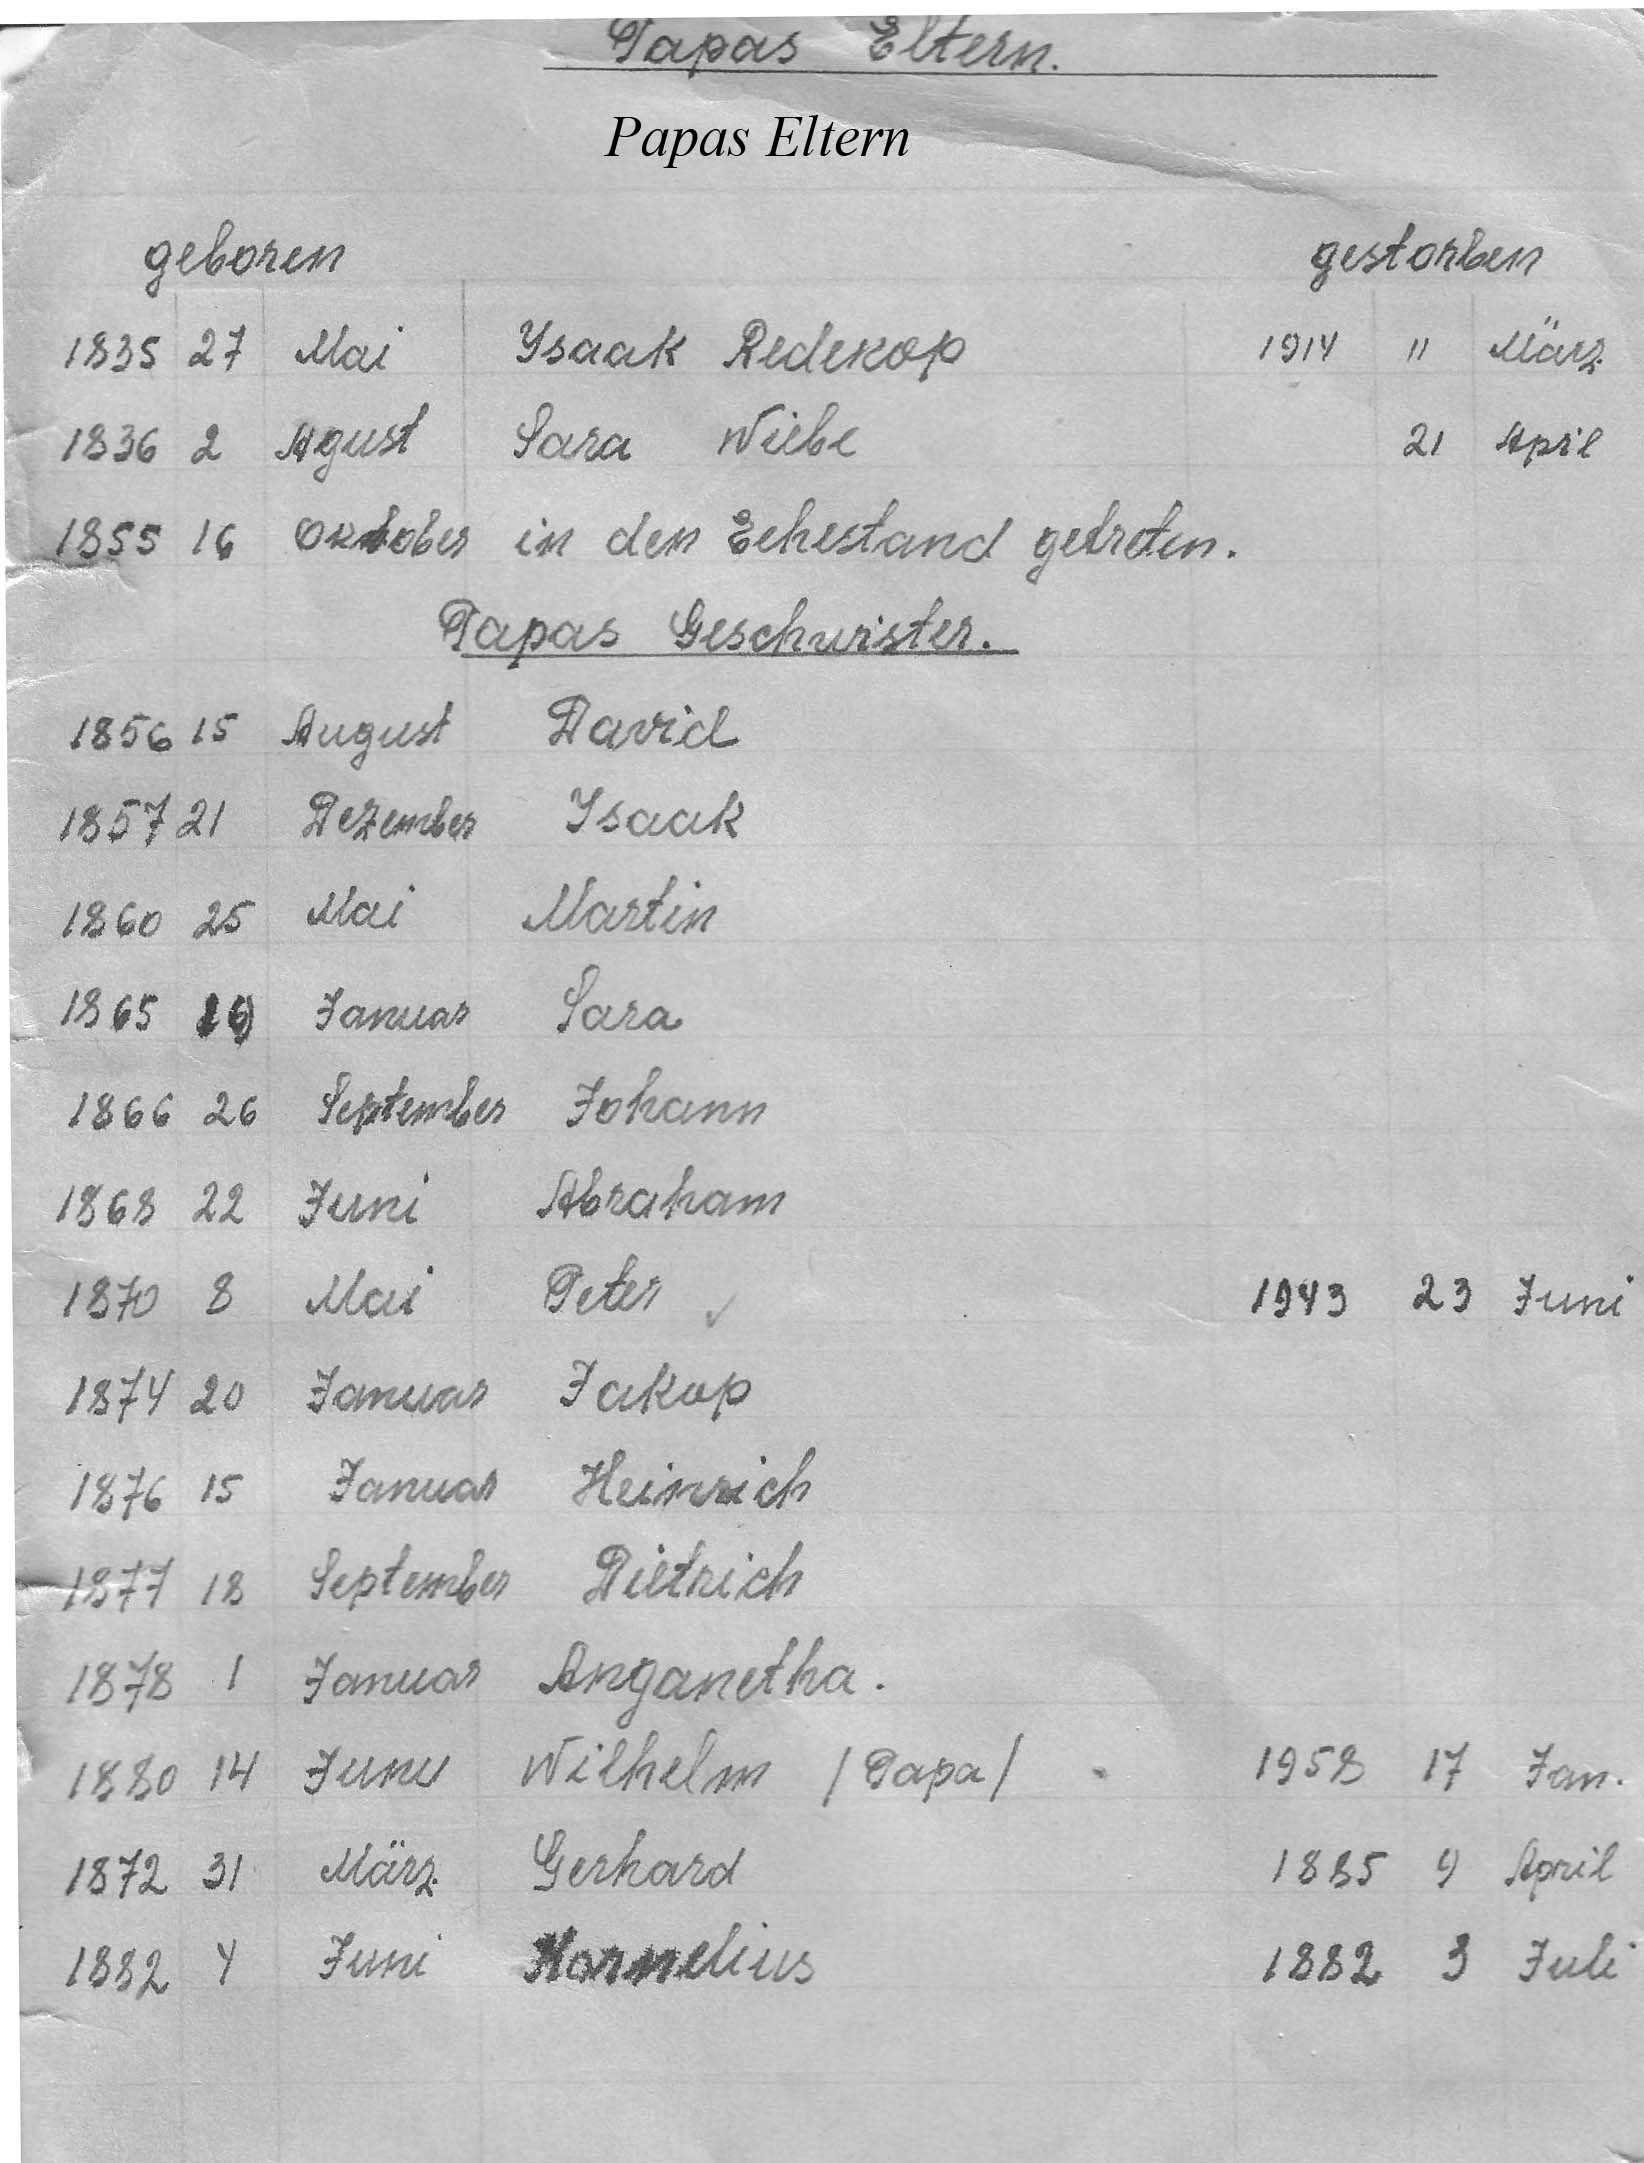 Papas Eltern.
Papas Eltern
geboren gestorben
1835 27 Mai Ysaak Redekop 1914 11 März
1836 2 Agust Sara Wiebe 21 April
1855 16 Oktober in den Eehestand getreten.
Papas Geschwister.
1856 15 August David
1857 21 Dezember Ysaak
1860 25 Mai Martin
1865 Januar Sara
1866 26 September Johann
1868 22 Juni Abraham
1870 8 Mai Peter ✓ 1943 23 Juni
1874 20 Januar Jakop
1876 15 Januar Heinrich
1877 18 September Dietrich
1878 1 Januar Anganetha.
1880 14 Juni Wilhelm /Papa/ 1958 17 Jan.
1872 31 März Gerhard 1885 9 April
1882 4 Juni Kornelius 1882 3 Juli